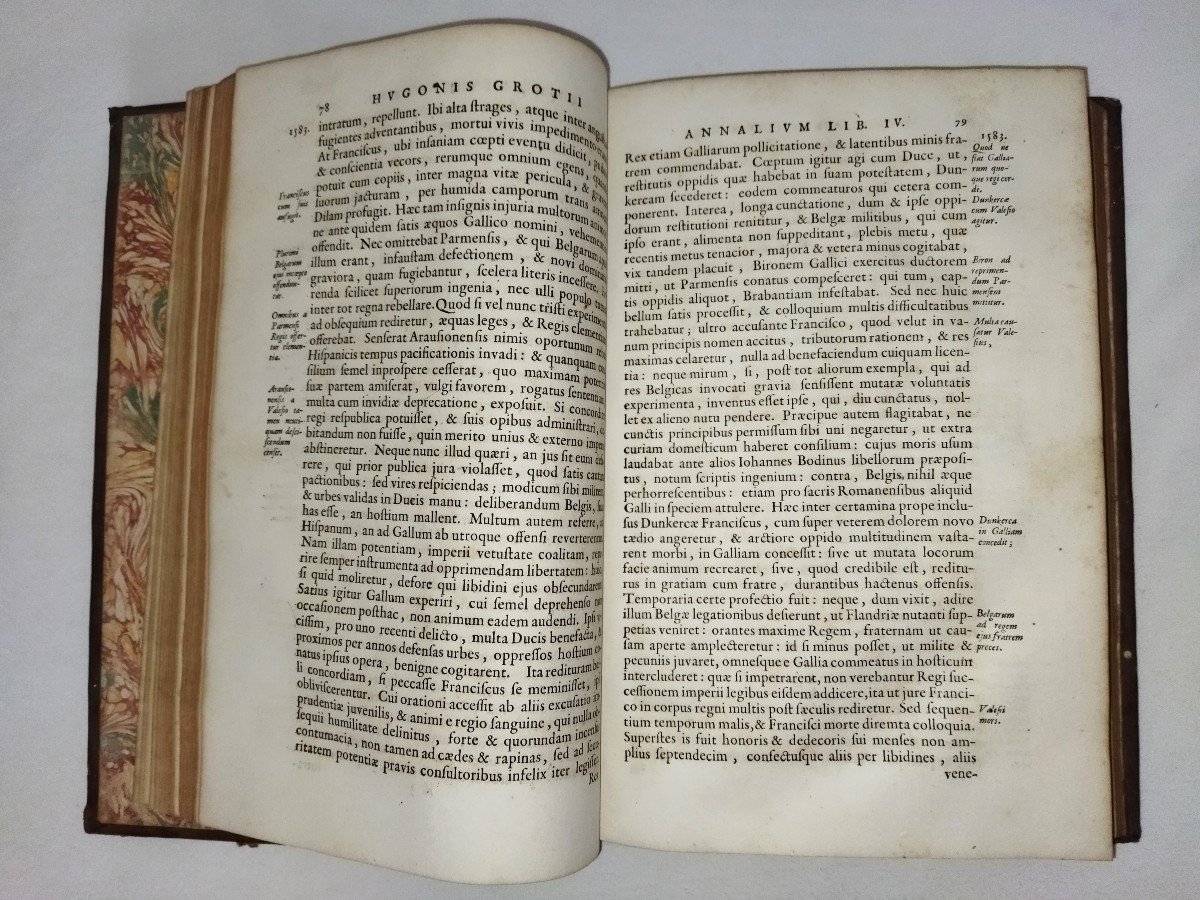 78 HVGONIS GROTII
intratum, repellunt. Ibi alta ſtrages, atque inter
fugientes adventantibus, mortui vivis impedimento
At Franciſcus, ubi inſaniam cœpti eventu didicit,
& conſcientia vecors, rerumque omnium egens,
potuit cum copiis, inter magna vitæ pericula, &
ſuorum jacturam, per humida camporum trans
Dilam profugit. Hæc tam inſignis injuria multorum
ne ante quidem ſatis æquos Gallico nomini,
offendit. Nec omittebat Parmenſis, & qui Belgarum
illum erant, infauſtam defectionem, & novi
graviora, quam fugiebantur, ſcelera literis inceſſere,
renda ſcilicet ſuperiorum ingenia, nec ulli populo
inter tot regna rebellare. Quod ſi vel nunc triſti
ad obſequium rediretur, æquas leges, & Regis
offerebat. Senſerat Arauſionenſis nimis oportunum
Hiſpanicis tempus pacificationis invadi: & quanquam
ſilium ſemel inproſpere ceſſerat, quo maximam
ſuæ partem amiſerat, vulgi favorem, rogatus
multa cum invidiæ deprecatione, expoſuit. Si
regi reſpublica potuiſſet, & ſuis opibus adminiſtrari,
bitandum non fuiſſe, quin merito unius & externo
abſtineretur. Neque nunc illud quæri, an jus ſit
rere, qui prior publica jura violaſſet, quod ſatis
pactionibus: ſed vires reſpiciendas; modicum ſibi
& urbes validas in Ducis manu: deliberandum Belgis,
has eſſe, an hoſtium mallent. Multum autem referre,
Hiſpanum, an ad Gallum ab utroque offenſi
Nam illam potentiam, imperii vetuſtate coalitam,
rire ſemper inſtrumenta ad opprimendam libertatem:
ſi quid moliretur, defore qui libidini ejus
Satius igitur Gallum experiri, cui ſemel deprehenſo
occaſionem poſthac, non animum eadem audendi. Ipſi
ciſſim, pro uno recenti delicto, multa Ducis benefacta, &
proximos per annos defenſas urbes, oppreſſos
natus ipſius opera, benigne cogitarent. Ita
li concordiam, ſi peccaſſe Franciſcus ſe meminiſſet,
obliviſcerentur. Cui orationi acceſſit ab aliis excuſatio
prudentiæ juvenilis, & animi e regio ſanguine, qui nulla
ſequii humilitate delinitus, forte & quorundam
contumacia, non tamen ad cædes & rapinas, ſed ad
ritatem potentiæ pravis conſultoribus infelix iter
Rex
1583.
Franciſcus
cum ſuis
aufugit.
Plurimi
Belgarum
quo incepto
offendun-
tur.
Omnibus a
Parmenſi
Regis offer-
tur clemen-
tia.
Arauſio-
nenſis a
Valeſio ta-
men neuti-
quam deſci-
ſcendum
cenſet.
ANNALIVM LIB. IV. 79
Rex etiam Galliarum pollicitatione, & latentibus minis fra-
trem commendabat. Cœptum igitur agi cum Duce, ut,
reſtitutis oppidis quæ habebat in ſuam poteſtatem, Dun-
kercam ſecederet: eodem commeaturos qui cetera com-
ponerent. Interea, longa cunctatione, dum & ipſe oppi-
dorum reſtitutioni renititur, & Belgæ militibus, qui cum
ipſo erant, alimenta non ſuppeditant, plebis metu, quæ
recentis metus tenacior, majora & vetera minus cogitabat,
vix tandem placuit, Bironem Gallici exercitus ductorem
mitti, ut Parmenſis conatus compeſceret: qui tum, cap-
tis oppidis aliquot, Brabantiam infeſtabat. Sed nec huic
bellum ſatis proceſſit, & colloquium multis difficultatibus
trahebatur; ultro accuſante Franciſco, quod velut in va-
num principis nomen accitus, tributorum rationem, & res
maximas celaretur, nulla ad benefaciendum cuiquam licen-
tia: neque mirum, ſi, poſt tot aliorum exempla, qui ad
res Belgicas invocati gravia ſenſiſſent mutatæ voluntatis
experimenta, inventus eſſet ipſe, qui, diu cunctatus, nol-
let ex alieno nutu pendere. Præcipue autem flagitabat, ne
cunctis principibus permiſſum ſibi uni negaretur, ut extra
curiam domeſticum haberet conſilium: cujus moris uſum
laudabat ante alios Iohannes Bodinus libellorum præpoſi-
tus, notum ſcriptis ingenium: contra, Belgis, nihil æque
perhorreſcentibus: etiam pro ſacris Romanenſibus aliquid
Galli in ſpeciem attulere. Hæc inter certamina prope inclu-
ſus Dunkercæ Franciſcus, cum ſuper veterem dolorem novo
tædio angeretur, & arctiore oppido multitudinem vaſta-
rent morbi, in Galliam conceſſit: ſive ut mutata locorum
facie animum recrearet, ſive, quod credibile eſt, reditu-
rus in gratiam cum fratre, durantibus hactenus offenſis.
Temporaria certe profectio fuit: neque, dum vixit, adire
illum Belgæ legationibus deſierunt, ut Flandriæ nutanti ſup-
petias veniret: orantes maxime Regem, fraternam ut cau-
ſam aperte amplecteretur: id ſi minus poſſet, ut milite &
pecuniis juvaret, omneſque e Gallia commeatus in hoſticum
intercluderet: quæ ſi impetrarent, non verebantur Regi ſuc-
ceſſionem imperii legibus eiſdem addicere, ita ut jure Franci-
co in corpus regni multis poſt ſæculis rediretur. Sed ſequen-
tium temporum malis, & Franciſci morte diremta colloquia.
Superſtes is fuit honoris & dedecoris ſui menſes non am-
plius ſeptendecim, confectuſque aliis per libidines, aliis
vene-
1583.
Quod ne
fiat Gallia-
rum quo-
que regi cor-
di.
Dunkercæ
cum Valeſio
agitur.
Biron ad
reprimen-
dum Par-
menſem
mittitur.
Multa cau-
ſatur Vale-
ſius,
Dunkerca
in Galliam
concedit;
Belgarum
ad regem
ejus fratrem
preces.
Valeſii
mors.